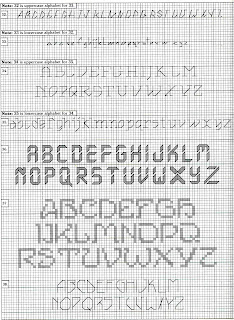 Note: 32 is uppercase alphabet for 33.
32 ABCDEFGHIJKLMNOPQRSTUVWXYZ
Note: 33 is lowercase alphabet for 32.
33 abcdefghijklmnopqrstuvwxyz
Note: 34 is uppercase alphabet for 35.
34 ABCDEFGHIJKLM
NOPQRSTUVWXYZ
Note: 35 is lowercase alphabet for 34.
35 abcdefghijklmnopqrstuvwxyz
36 ABCDEFGHIJKLM
NOPQRSTUVWXYZ
37 ABCDEFGH
IJKLMNOPQ
RSTUVWXYZ
38 ABCDEFGHIJKLM
NOPQRSTUVWXYZ